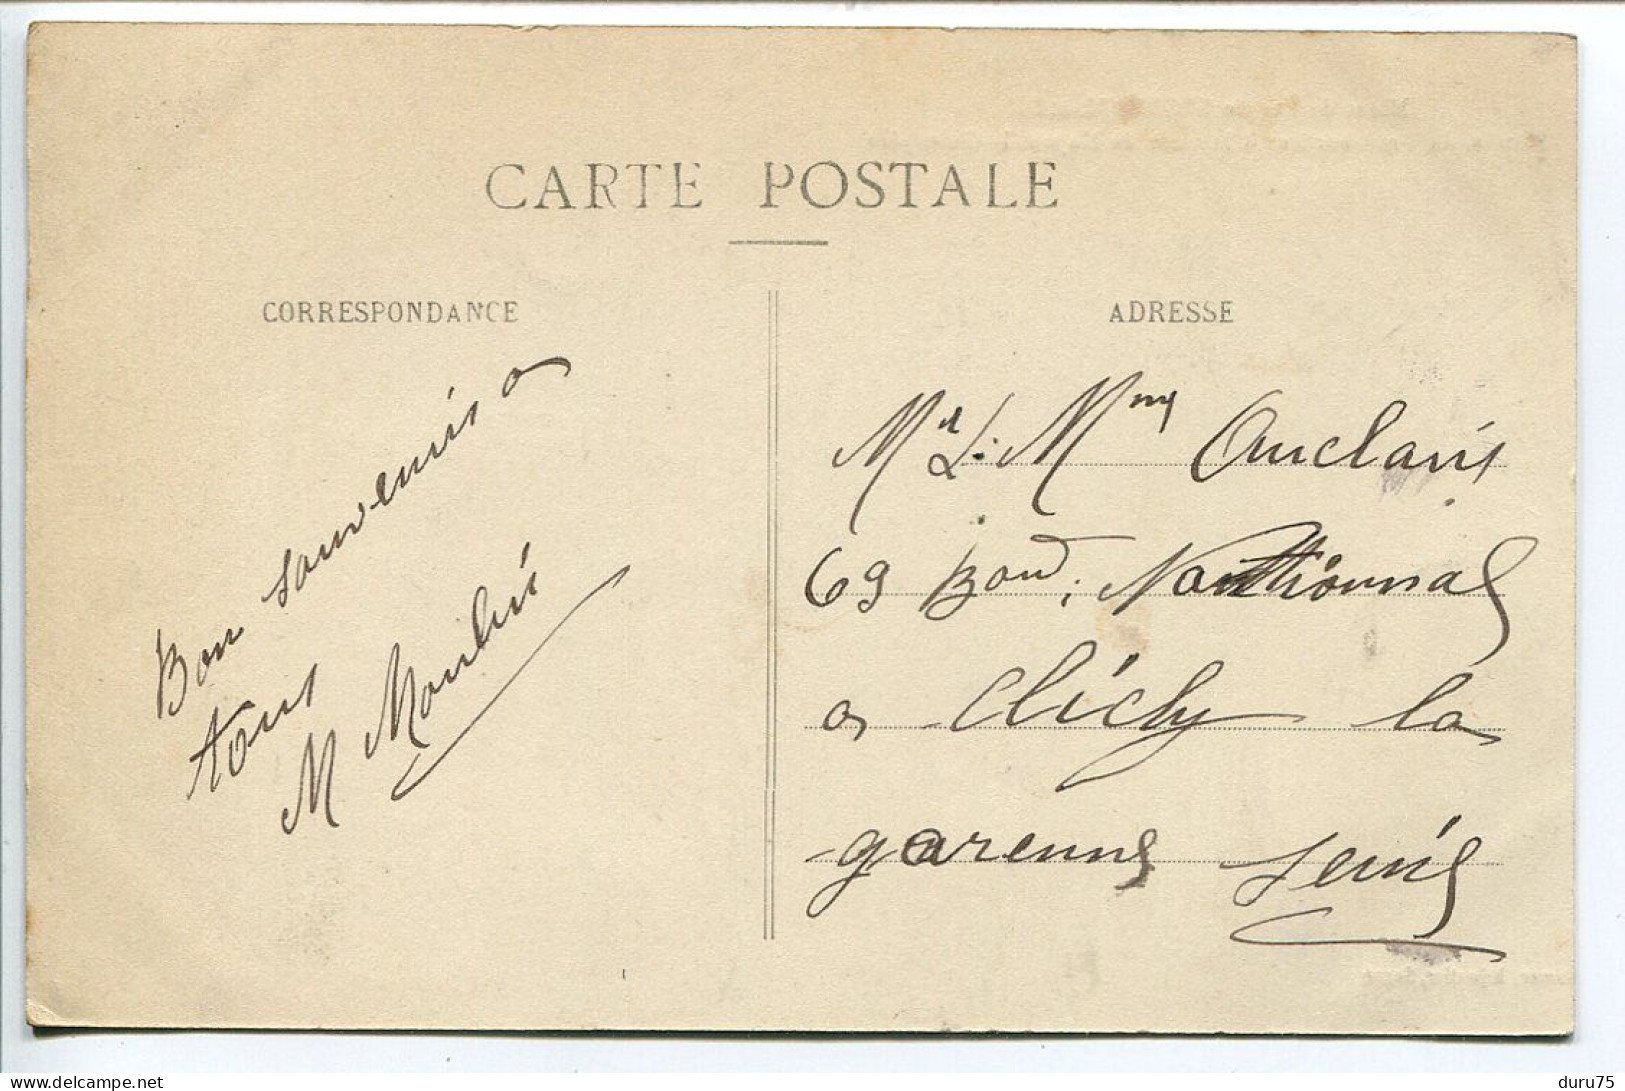 CARTE POSTALE
CORRESPONDANCE
Bon souvenir a
tous
M Moulin
ADRESSE
Mr & Mme Auclair
69 Boud; Nationnal
a Clichy la
garenne Seine
Delcampe.net
duru75